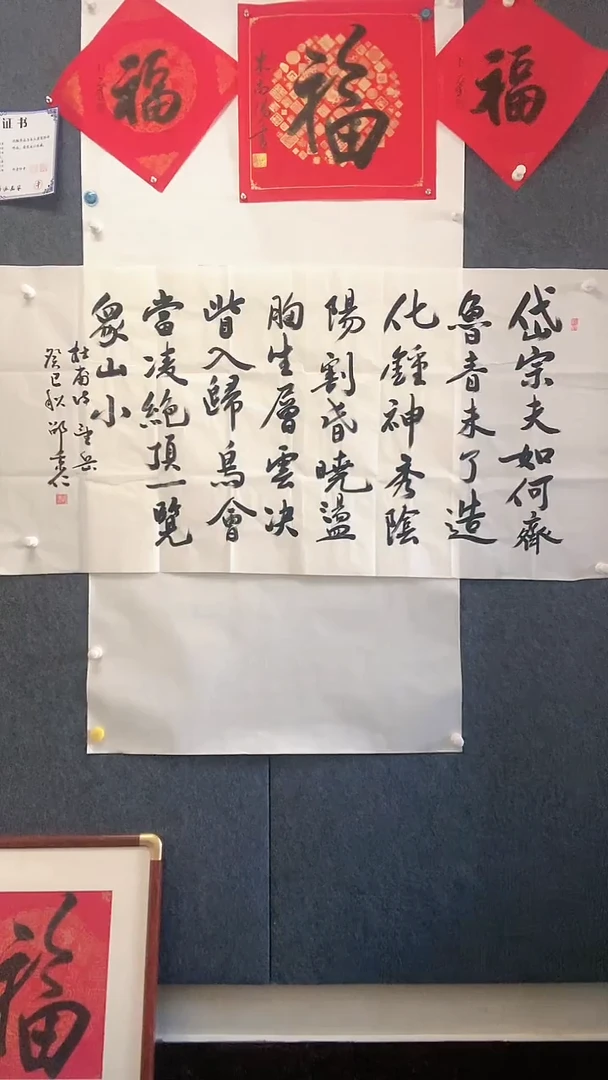 福
福
福
证书
岱宗夫如何齊
魯青未了造
化鍾神秀陰
陽割昏曉盪
胸生層雲決
眥入歸鳥會
當凌絶頂一覽
衆山小
杜甫诗望岳
癸巳秋邵秉仁
福